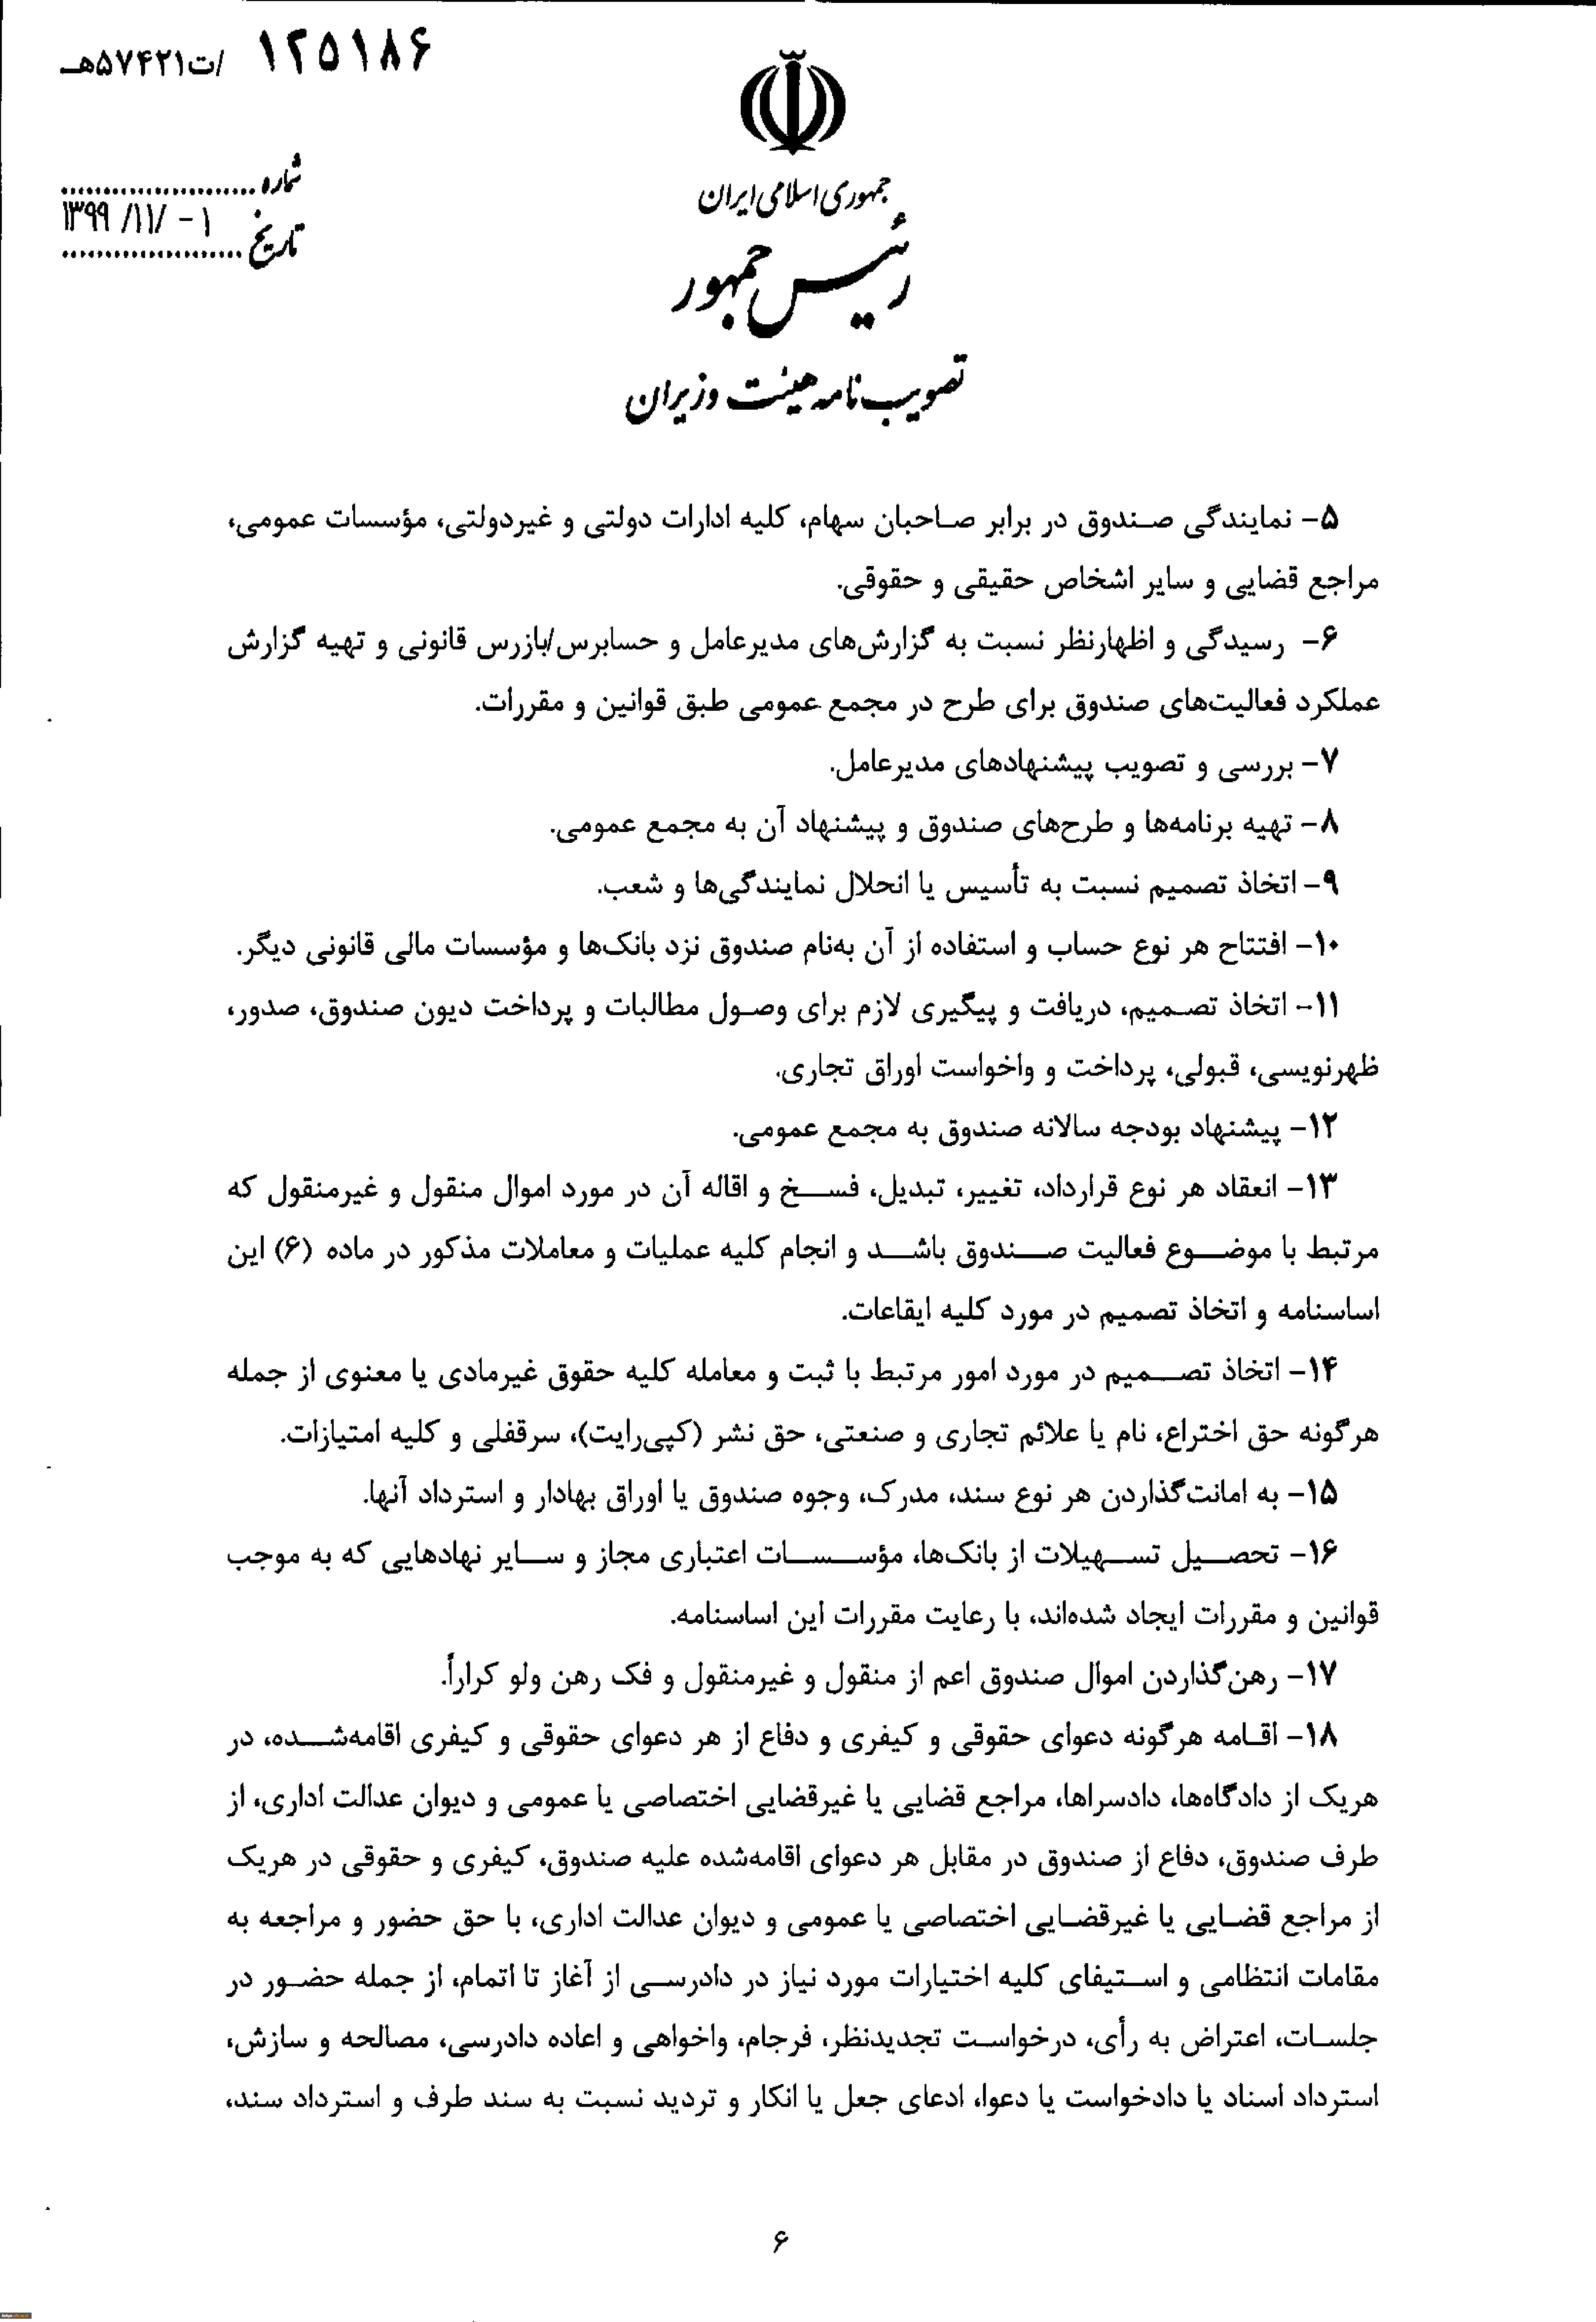 ۱۲۵۱۸۶ /ت۵۷۴۲۱هـ
جمهوری اسلامی ایران
شماره
رئیس جمهور
۱۳۹۹/۱۱/-۱
تاریخ
تصویب‌نامه هیئت وزیران
۵- نمایندگی صندوق در برابر صاحبان سهام، کلیه ادارات دولتی و غیردولتی، مؤسسات عمومی،
مراجع قضایی و سایر اشخاص حقیقی و حقوقی.
۶- رسیدگی و اظهارنظر نسبت به گزارش‌های مدیرعامل و حسابرس/بازرس قانونی و تهیه گزارش
عملکرد فعالیت‌های صندوق برای طرح در مجمع عمومی طبق قوانین و مقررات.
۷- بررسی و تصویب پیشنهادهای مدیرعامل.
۸- تهیه برنامه‌ها و طرح‌های صندوق و پیشنهاد آن به مجمع عمومی.
۹- اتخاذ تصمیم نسبت به تأسیس یا انحلال نمایندگی‌ها و شعب.
۱۰- افتتاح هر نوع حساب و استفاده از آن به‌نام صندوق نزد بانک‌ها و مؤسسات مالی قانونی دیگر.
۱۱- اتخاذ تصمیم، دریافت و پیگیری لازم برای وصول مطالبات و پرداخت دیون صندوق، صدور،
ظهرنویسی، قبولی، پرداخت و واخواست اوراق تجاری.
۱۲- پیشنهاد بودجه سالانه صندوق به مجمع عمومی.
۱۳- انعقاد هر نوع قرارداد، تغییر، تبدیل، فسخ و اقاله آن در مورد اموال منقول و غیرمنقول که
مرتبط با موضوع فعالیت صندوق باشد و انجام کلیه عملیات و معاملات مذکور در ماده (۶) این
اساسنامه و اتخاذ تصمیم در مورد کلیه ایقاعات.
۱۴- اتخاذ تصمیم در مورد امور مرتبط با ثبت و معامله کلیه حقوق غیرمادی یا معنوی از جمله
هرگونه حق اختراع، نام یا علائم تجاری و صنعتی، حق نشر (کپی‌رایت)، سرقفلی و کلیه امتیازات.
۱۵- به امانت‌گذاردن هر نوع سند، مدرک، وجوه صندوق یا اوراق بهادار و استرداد آنها.
۱۶- تحصیل تسهیلات از بانک‌ها، مؤسسات اعتباری مجاز و سایر نهادهایی که به موجب
قوانین و مقررات ایجاد شده‌اند، با رعایت مقررات این اساسنامه.
۱۷- رهن‌گذاردن اموال صندوق اعم از منقول و غیرمنقول و فک رهن ولو کراراً.
۱۸- اقامه هرگونه دعوای حقوقی و کیفری و دفاع از هر دعوای حقوقی و کیفری اقامه‌شده، در
هریک از دادگاه‌ها، دادسراها، مراجع قضایی یا غیرقضایی اختصاصی یا عمومی و دیوان عدالت اداری، از
طرف صندوق، دفاع از صندوق در مقابل هر دعوای اقامه‌شده علیه صندوق، کیفری و حقوقی در هریک
از مراجع قضایی یا غیرقضایی اختصاصی یا عمومی و دیوان عدالت اداری، با حق حضور و مراجعه به
مقامات انتظامی و استیفای کلیه اختیارات مورد نیاز در دادرسی از آغاز تا اتمام، از جمله حضور در
جلسات، اعتراض به رأی، درخواست تجدیدنظر، فرجام، واخواهی و اعاده دادرسی، مصالحه و سازش،
استرداد اسناد یا دادخواست یا دعوا، ادعای جعل یا انکار و تردید نسبت به سند طرف و استرداد سند،
۶